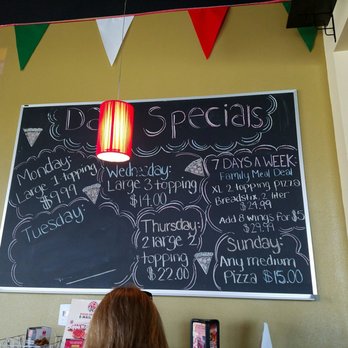 Specials
Monday:
Large 1 topping
$9.99
Tuesday:
Wednesday:
Large 3 topping
$14.00
Thursday:
2 large 2
topping
$22.00
7 DAYS A WEEK:
Family Meal Deal
XL 2 topping pizza
Breadstix, 2 liter
$24.99
Add 8 wings for $5
$29.99
Sunday:
Any medium
Pizza $15.00